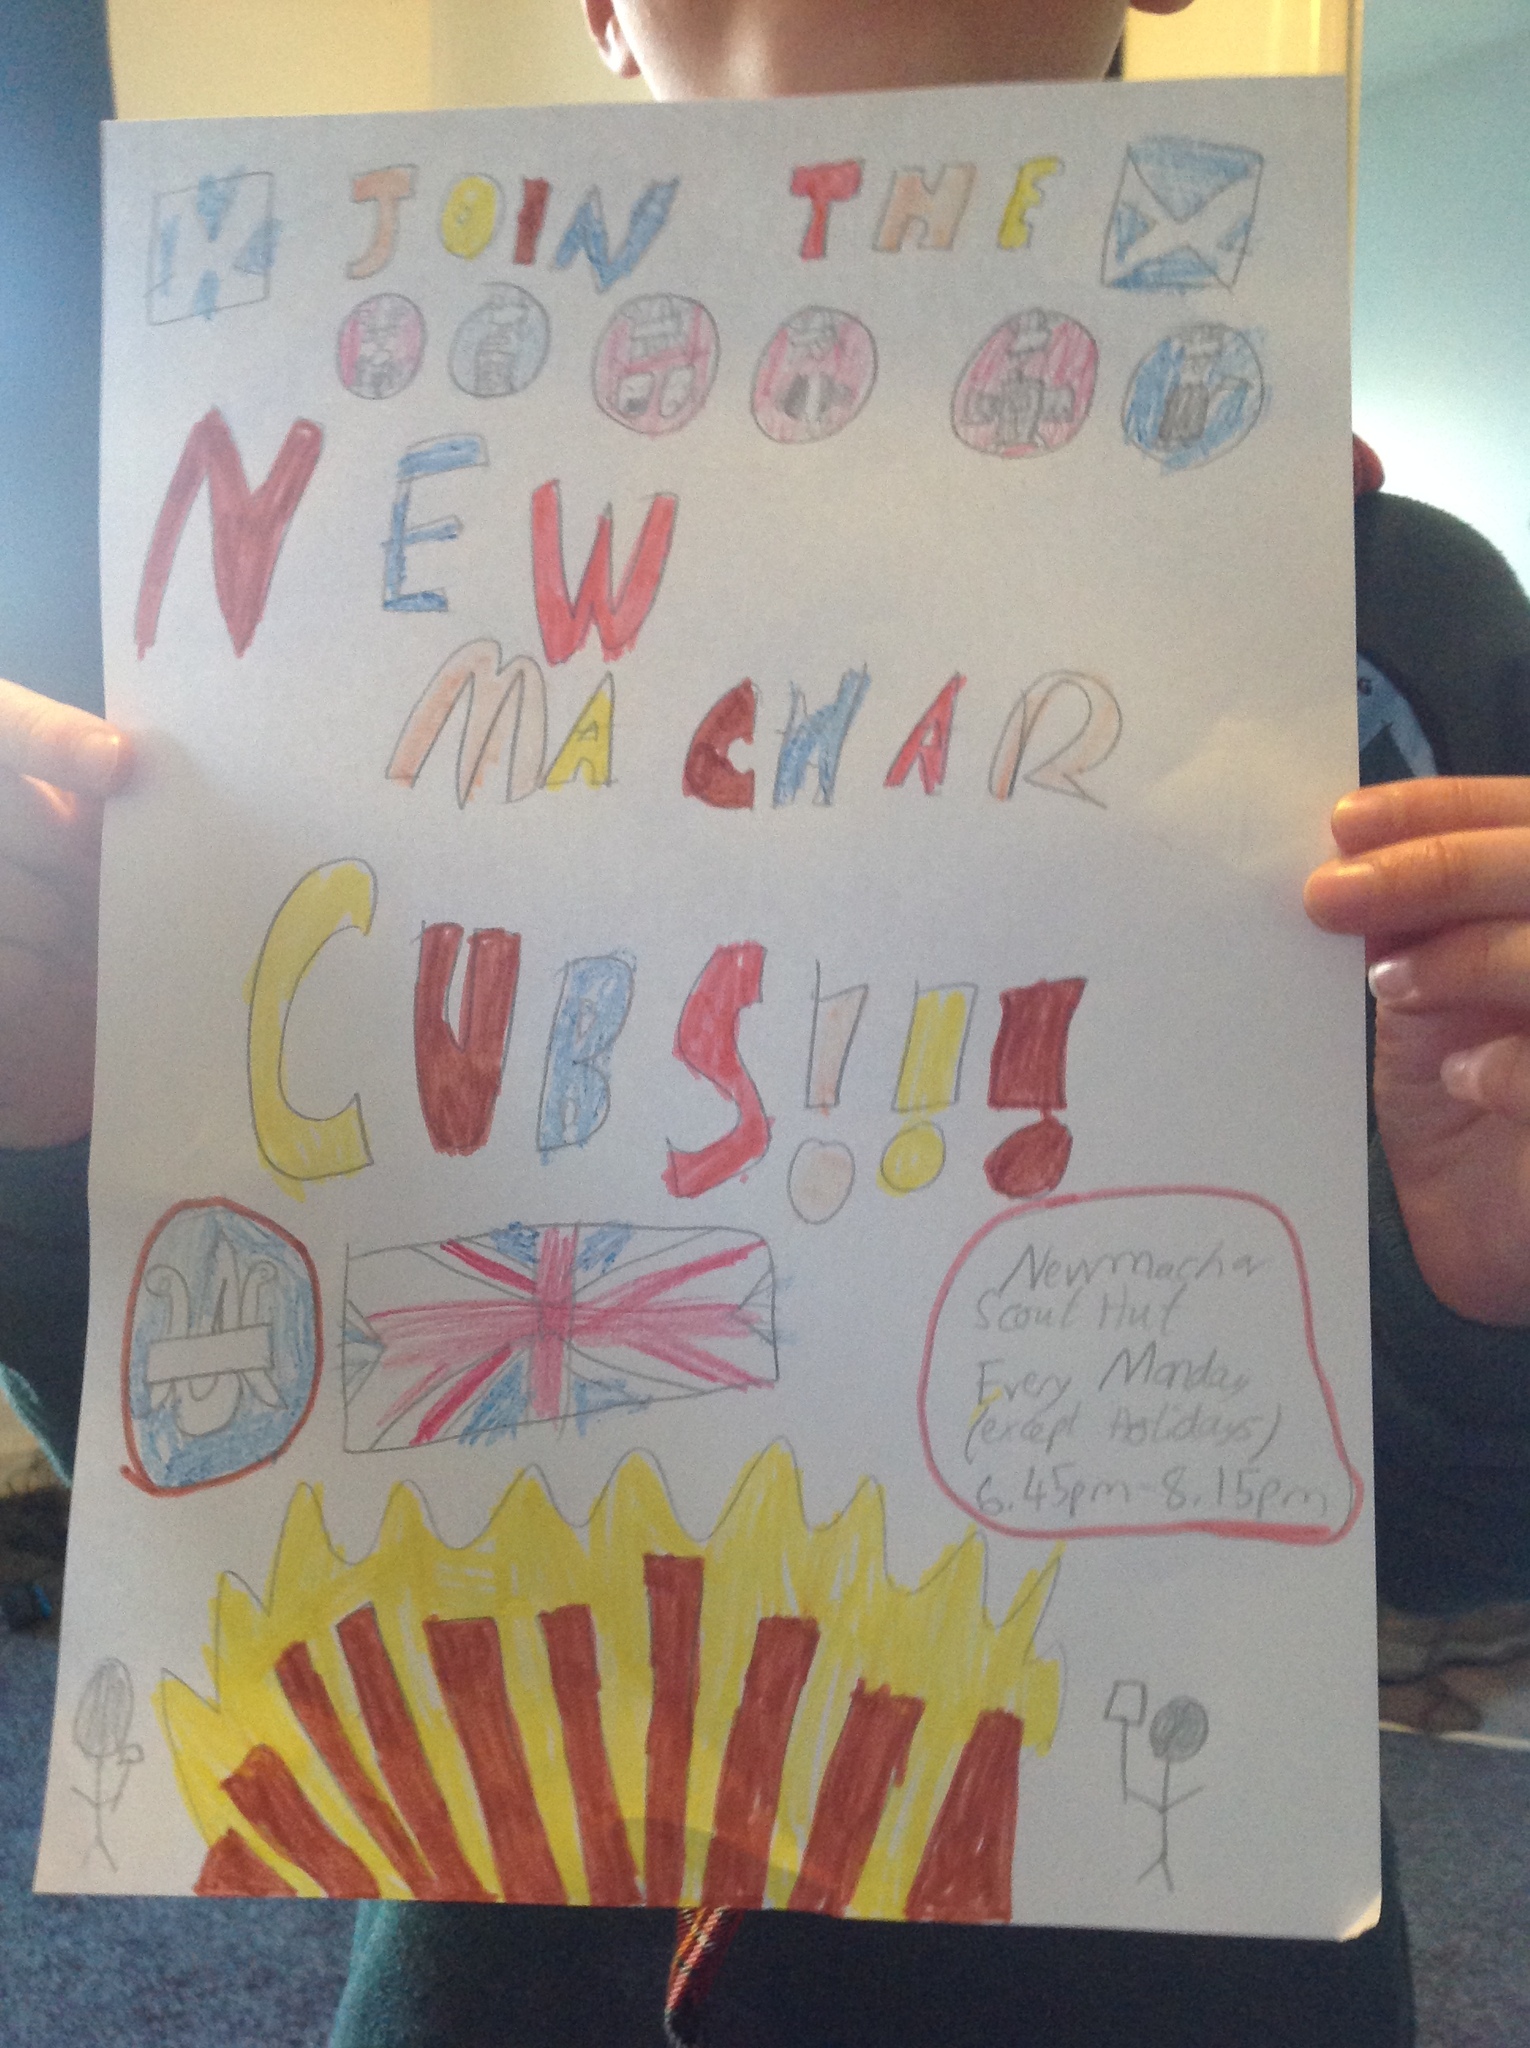 JOIN THE
NEW
MACHAR
CUBS!!!
Newmachar
Scout Hut
Every Monday
(except Holidays)
6.45pm-8.15pm